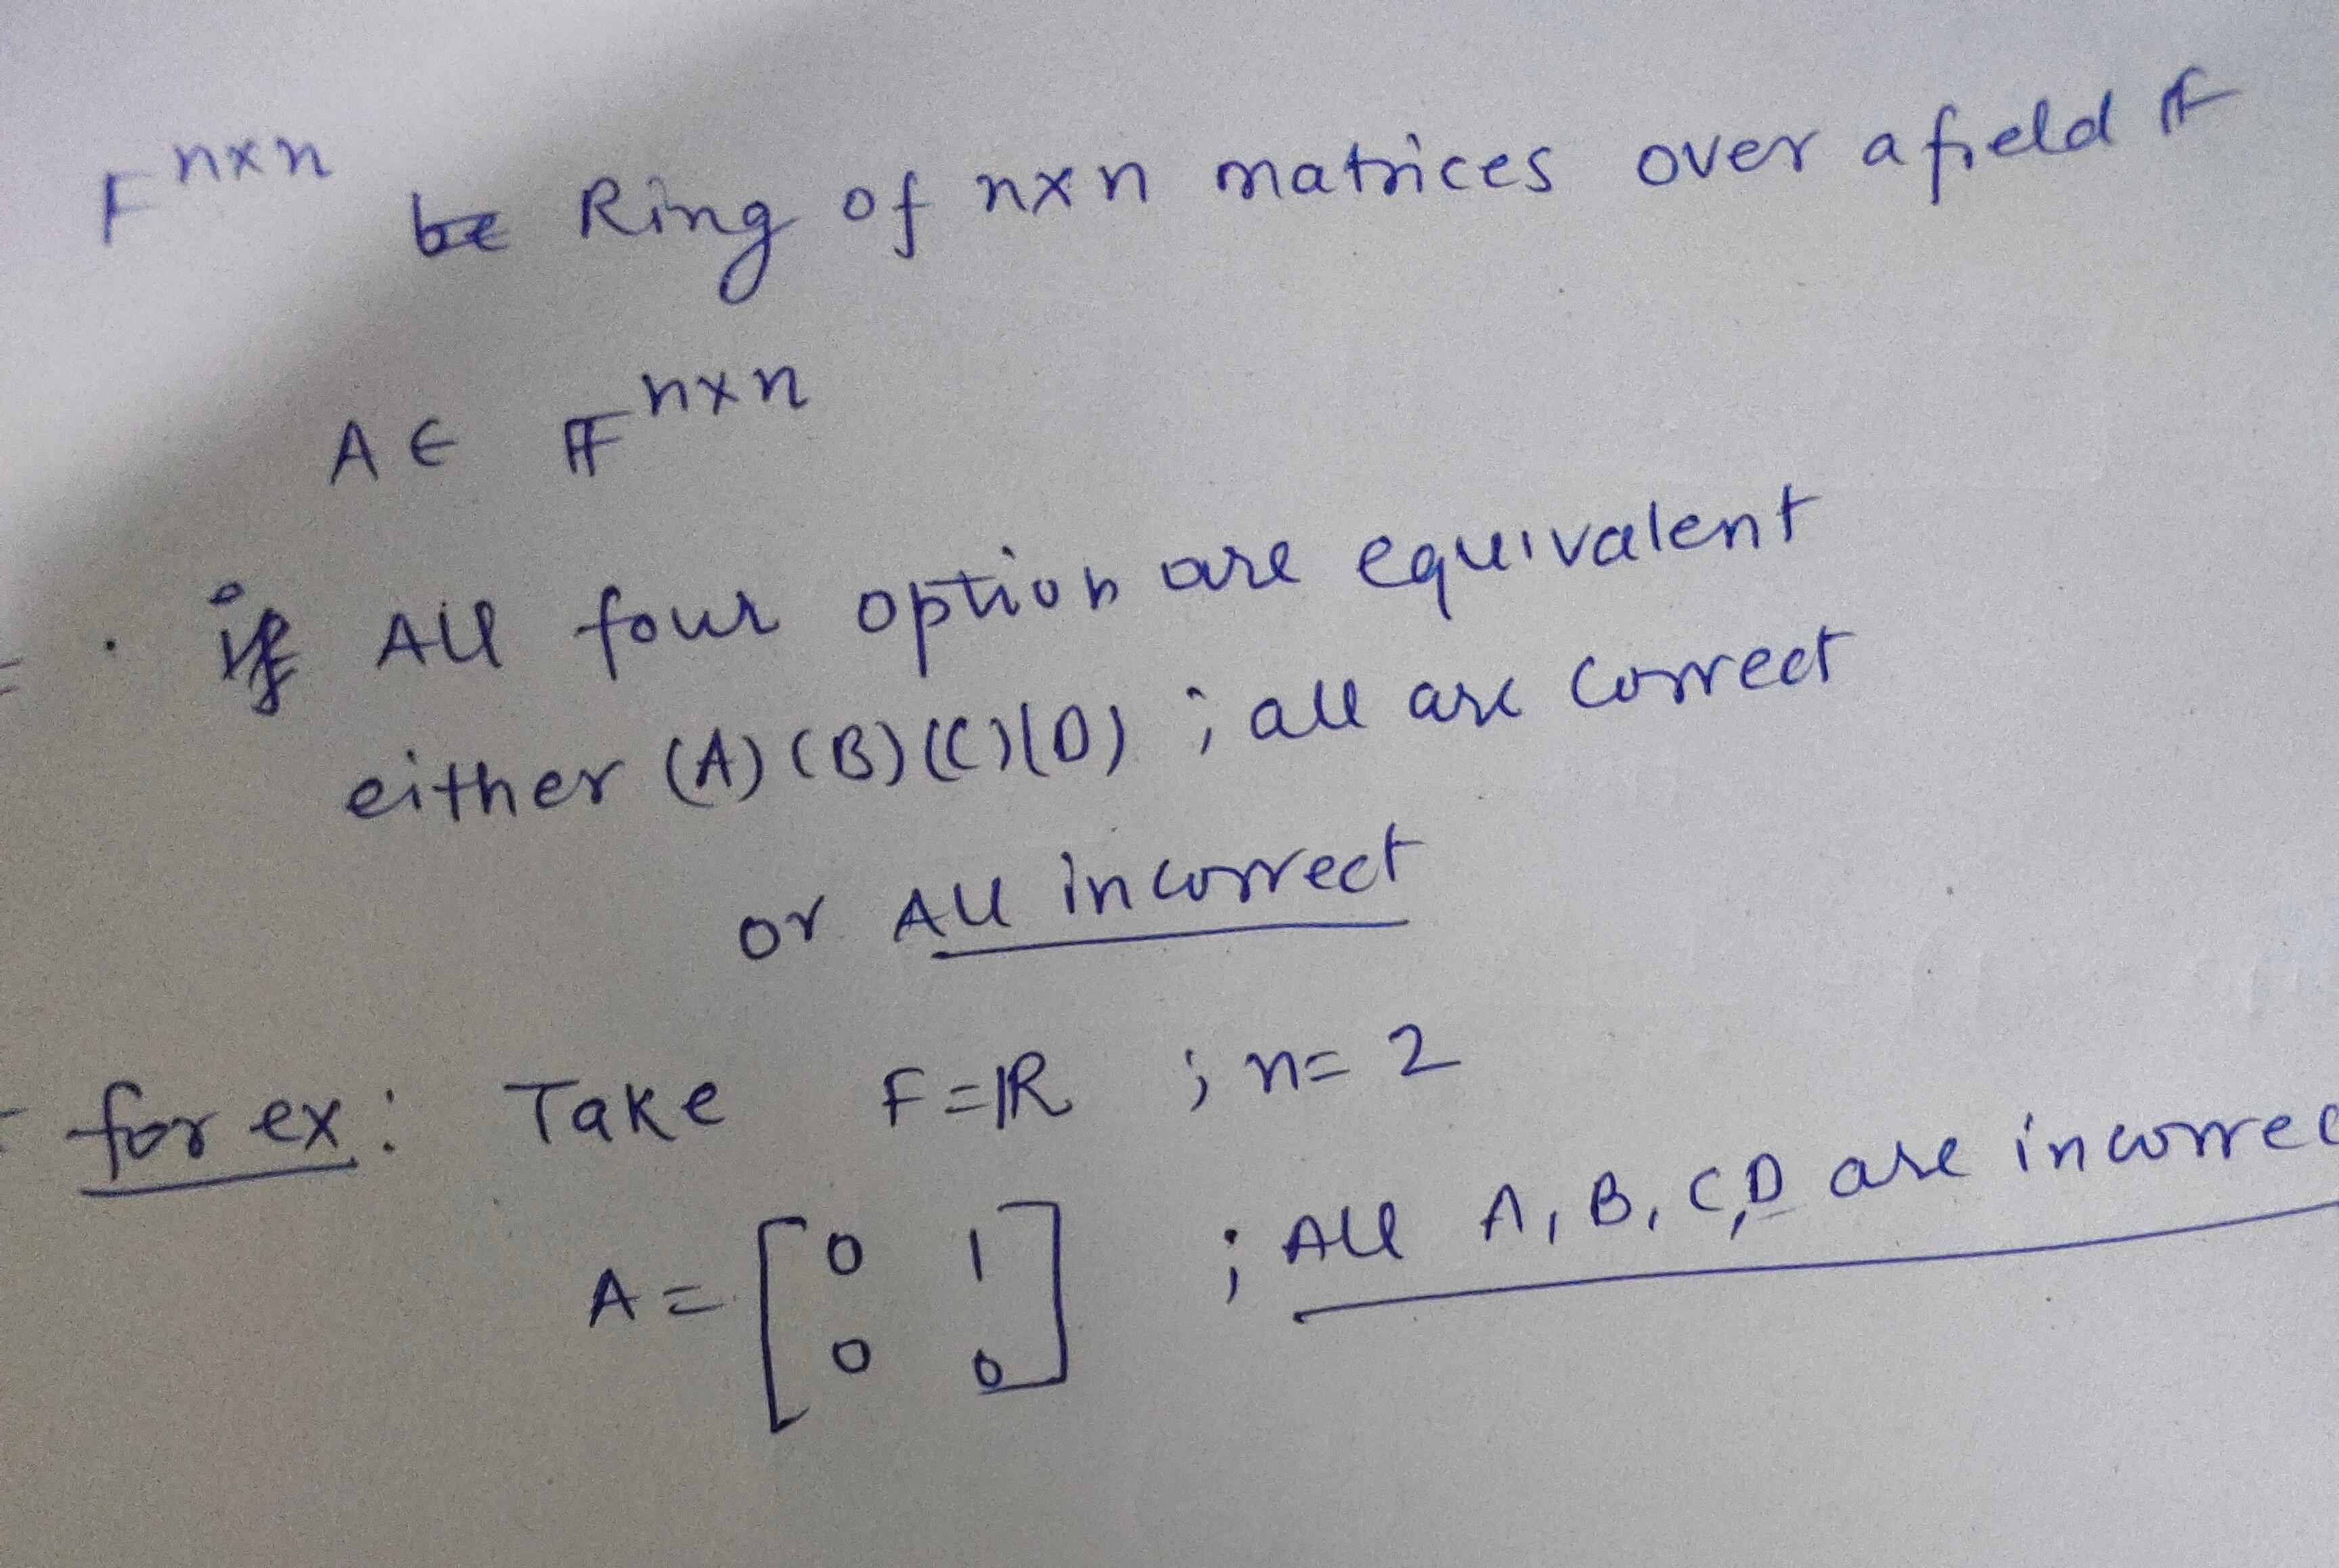 F^{n×n} be Ring of n×n matrices over a field 𝔽
A ∈ 𝔽^{n×n}
= . if All four option are equivalent
either (A) (B) (C) (D) ; all are correct
or All incorrect
- for ex : Take F = ℝ ; n = 2
A = [0 1
0 0] ; All A, B, C, D are incorrec